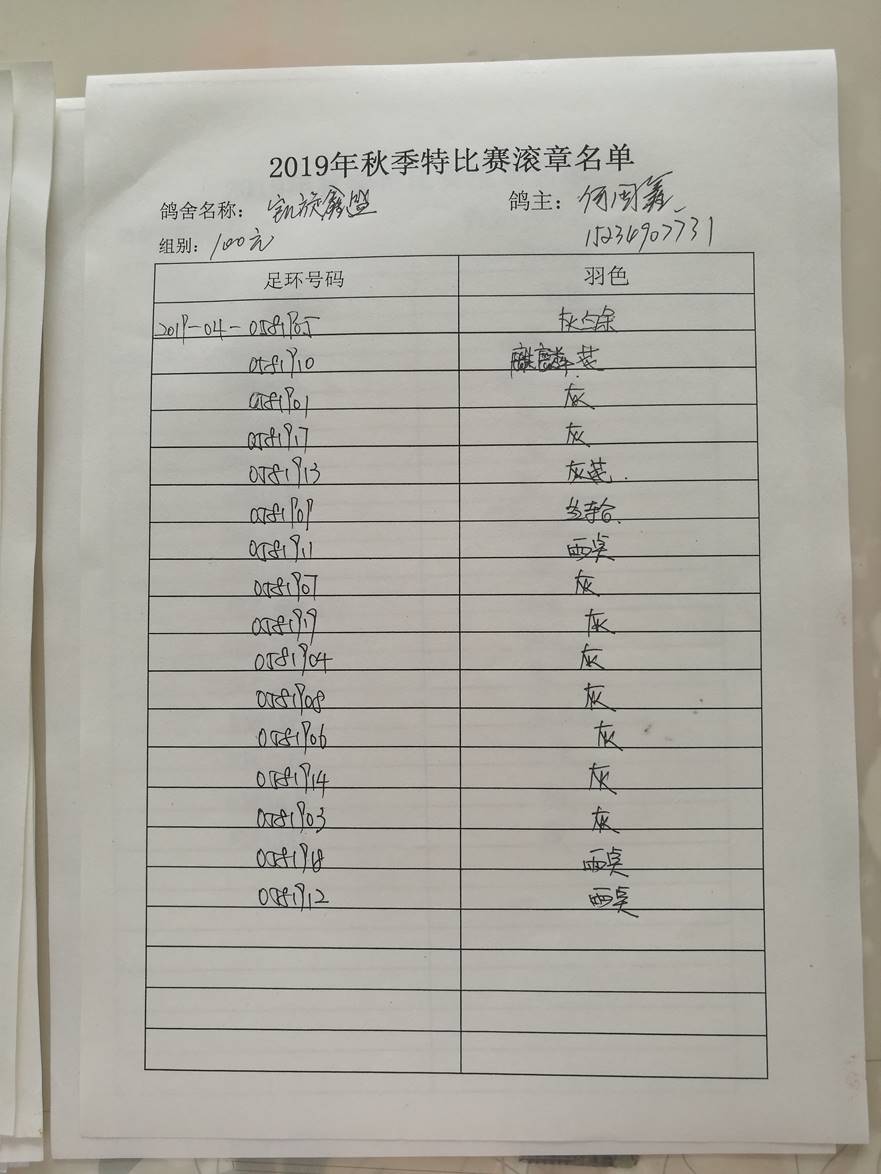 2019年秋季特比赛滚章名单
鸽舍名称: 凯旋鑫盟 鸽主: 何国鑫
组别: 100元 15234907731
足环号码 羽色
2019-04-0581905
0581910 麒麟花
0581901 灰
0581917 灰
0581913 灰花.
0581909
0581911 西点
0581907 灰
0581919 灰
0581904 灰
0581908 灰
0581906 灰
0581914 灰
0581903 灰
0581918 西点
0581912 西点